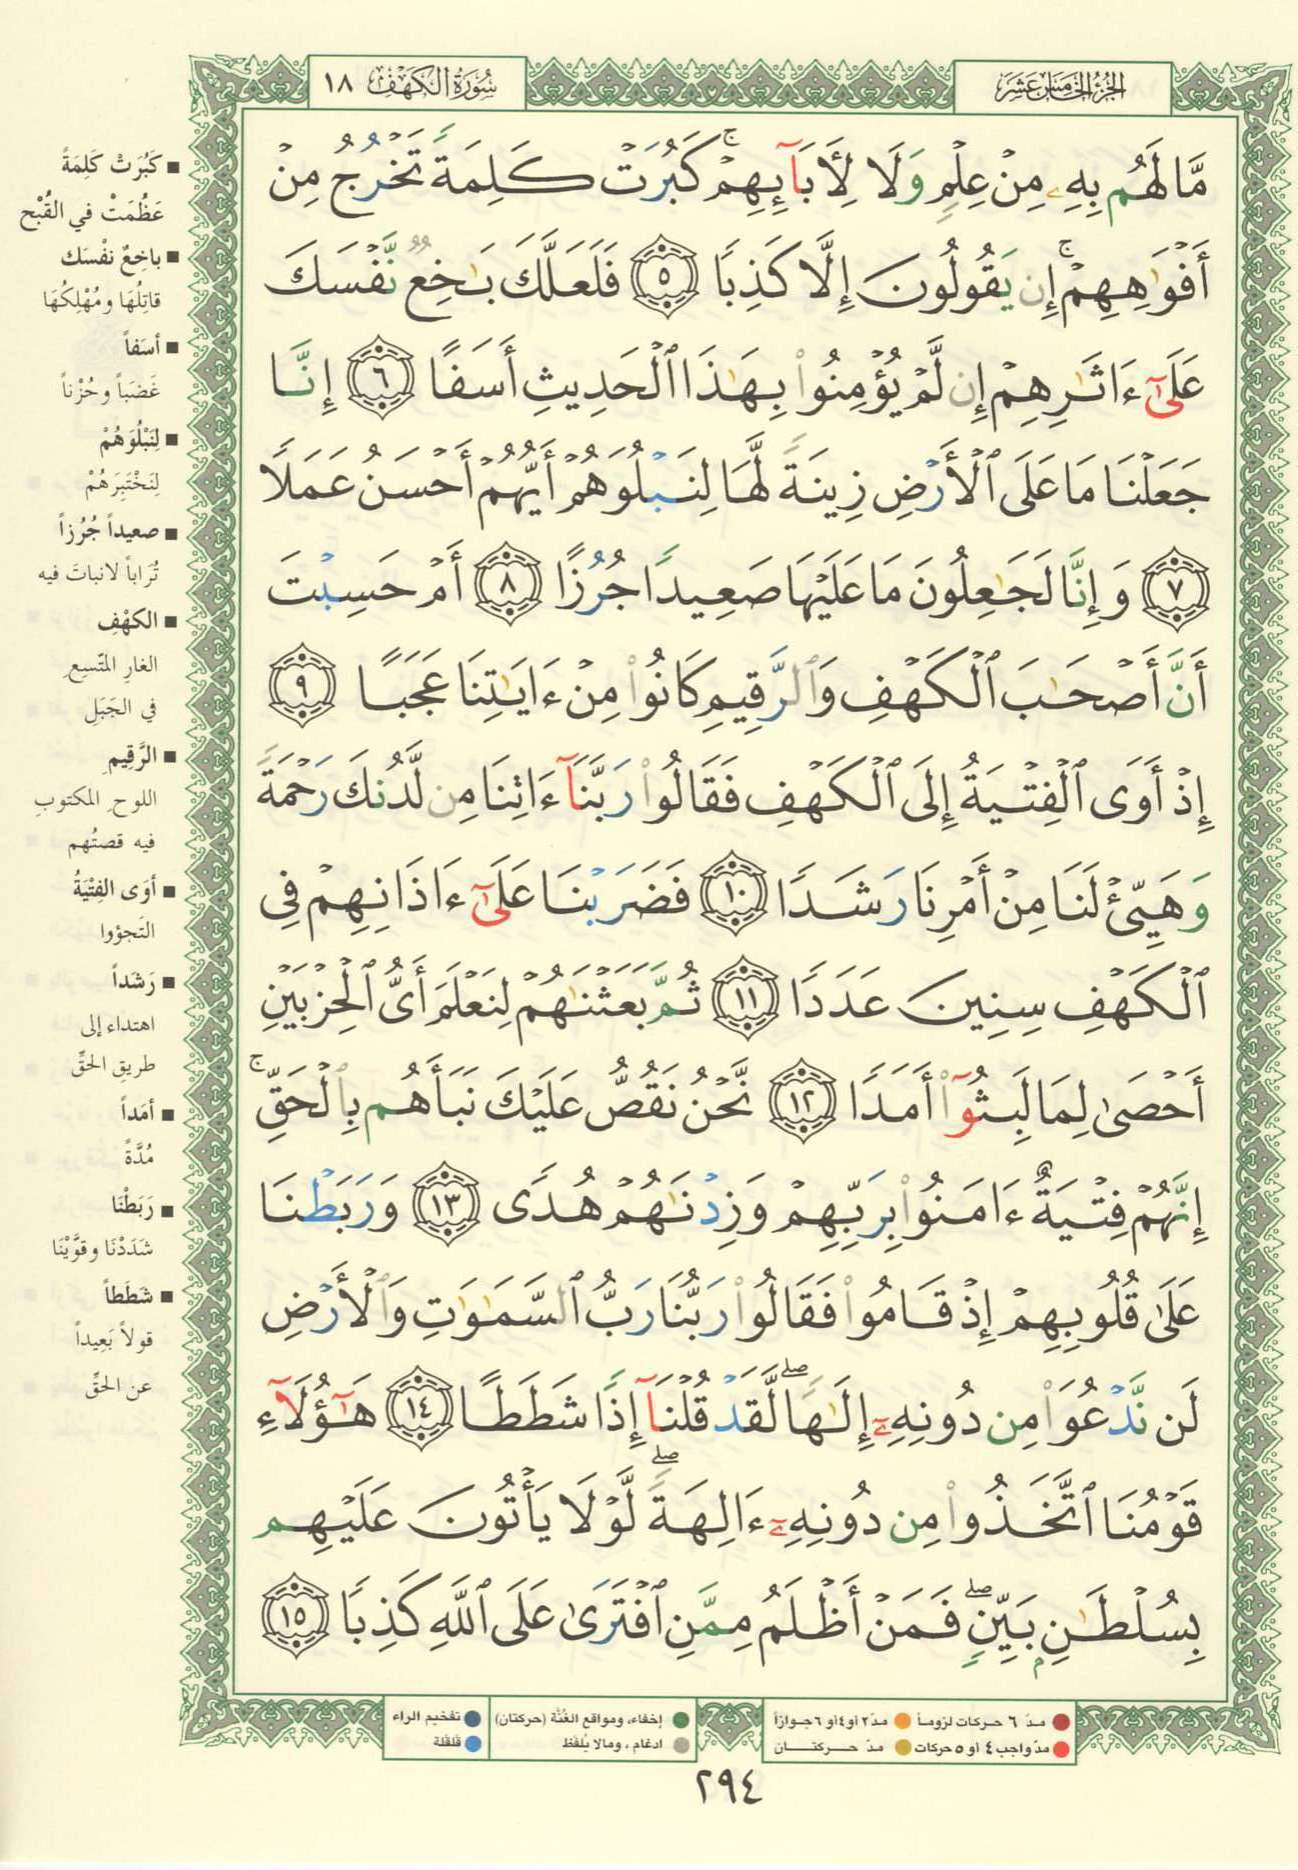 الجزء الخامس عشر
سورة الكهف ١٨
مَّا لَهُم بِهِۦ مِنْ عِلْمٍ وَلَا لِأٓبَآئِهِمْ ۚ كَبُرَتْ كَلِمَةً تَخْرُجُ مِنْ
أَفْوَٰهِهِمْ ۚ إِن يَقُولُونَ إِلَّا كَذِبًا ٥ فَلَعَلَّكَ بَٰخِعٌ نَّفْسَكَ
عَلَىٰٓ ءَاثَٰرِهِمْ إِن لَّمْ يُؤْمِنُوا۟ بِهَٰذَا ٱلْحَدِيثِ أَسَفًا ٦ إِنَّا
جَعَلْنَا مَا عَلَى ٱلْأَرْضِ زِينَةً لَّهَا لِنَبْلُوَهُمْ أَيُّهُمْ أَحْسَنُ عَمَلًا
٧ وَإِنَّا لَجَٰعِلُونَ مَا عَلَيْهَا صَعِيدًا جُرُزًا ٨ أَمْ حَسِبْتَ
أَنَّ أَصْحَٰبَ ٱلْكَهْفِ وَٱلرَّقِيمِ كَانُوا۟ مِنْ ءَايَٰتِنَا عَجَبًا ٩
إِذْ أَوَى ٱلْفِتْيَةُ إِلَى ٱلْكَهْفِ فَقَالُوا۟ رَبَّنَآ ءَاتِنَا مِن لَّدُنكَ رَحْمَةً
وَهَيِّئْ لَنَا مِنْ أَمْرِنَا رَشَدًا ١٠ فَضَرَبْنَا عَلَىٰٓ ءَاذَانِهِمْ فِى
ٱلْكَهْفِ سِنِينَ عَدَدًا ١١ ثُمَّ بَعَثْنَٰهُمْ لِنَعْلَمَ أَىُّ ٱلْحِزْبَيْنِ
أَحْصَىٰ لِمَا لَبِثُوٓا۟ أَمَدًا ١٢ نَّحْنُ نَقُصُّ عَلَيْكَ نَبَأَهُم بِٱلْحَقِّ ۚ
إِنَّهُمْ فِتْيَةٌ ءَامَنُوا۟ بِرَبِّهِمْ وَزِدْنَٰهُمْ هُدًى ١٣ وَرَبَطْنَا
عَلَىٰ قُلُوبِهِمْ إِذْ قَامُوا۟ فَقَالُوا۟ رَبُّنَا رَبُّ ٱلسَّمَٰوَٰتِ وَٱلْأَرْضِ
لَن نَّدْعُوَا۟ مِن دُونِهِۦٓ إِلَٰهًا ۖ لَّقَدْ قُلْنَآ إِذًا شَطَطًا ١٤ هَٰٓؤُلَآءِ
قَوْمُنَا ٱتَّخَذُوا۟ مِن دُونِهِۦٓ ءَالِهَةً ۖ لَّوْلَا يَأْتُونَ عَلَيْهِم
بِسُلْطَٰنٍۭ بَيِّنٍ ۖ فَمَنْ أَظْلَمُ مِمَّنِ ٱفْتَرَىٰ عَلَى ٱللَّهِ كَذِبًا ١٥
■ كَبُرَتْ كَلِمَةً
عَظُمَتْ في القُبْح
■ باخِعٌ نفْسَك
قاتِلُهَا ومُهْلِكُهَا
■ أسَفاً
غَضَبَاً وحُزْناً
■ لِنَبْلُوَهُمْ
لِنَخْتَبِرَهُمْ
■ صعيداً جُرُزاً
تُرَاباً لا نباتَ فيه
■ الكهْفِ
الغارِ المتّسِعِ
في الجَبَل
■ الرَّقِيم
اللوحِ المكتوبِ
فيه قصتُهم
■ أوَى الفِتْيَةُ
التَجؤوا
■ رَشَداً
اهتداء إلى
طريقِ الحقِّ
■ أمَداً
مُدَّةً
■ رَبَطْنَا
شَدَدْنَا وقوَّيْنَا
■ شَطَطاً
قولاً بَعِيداً
عن الحقِّ
● مدّ ٦ حركات لزوماً ● مدّ ٢ أو ٤ أو ٦ جوازاً
● مدّ واجب ٤ أو ٥ حركات ● مدّ حركتان
● إخفاء، ومواقع الغُنَّة (حركتان)
● ادغام، ومالا يُلفَظ
● تفخيم الراء
● قلقلة
٢٩٤